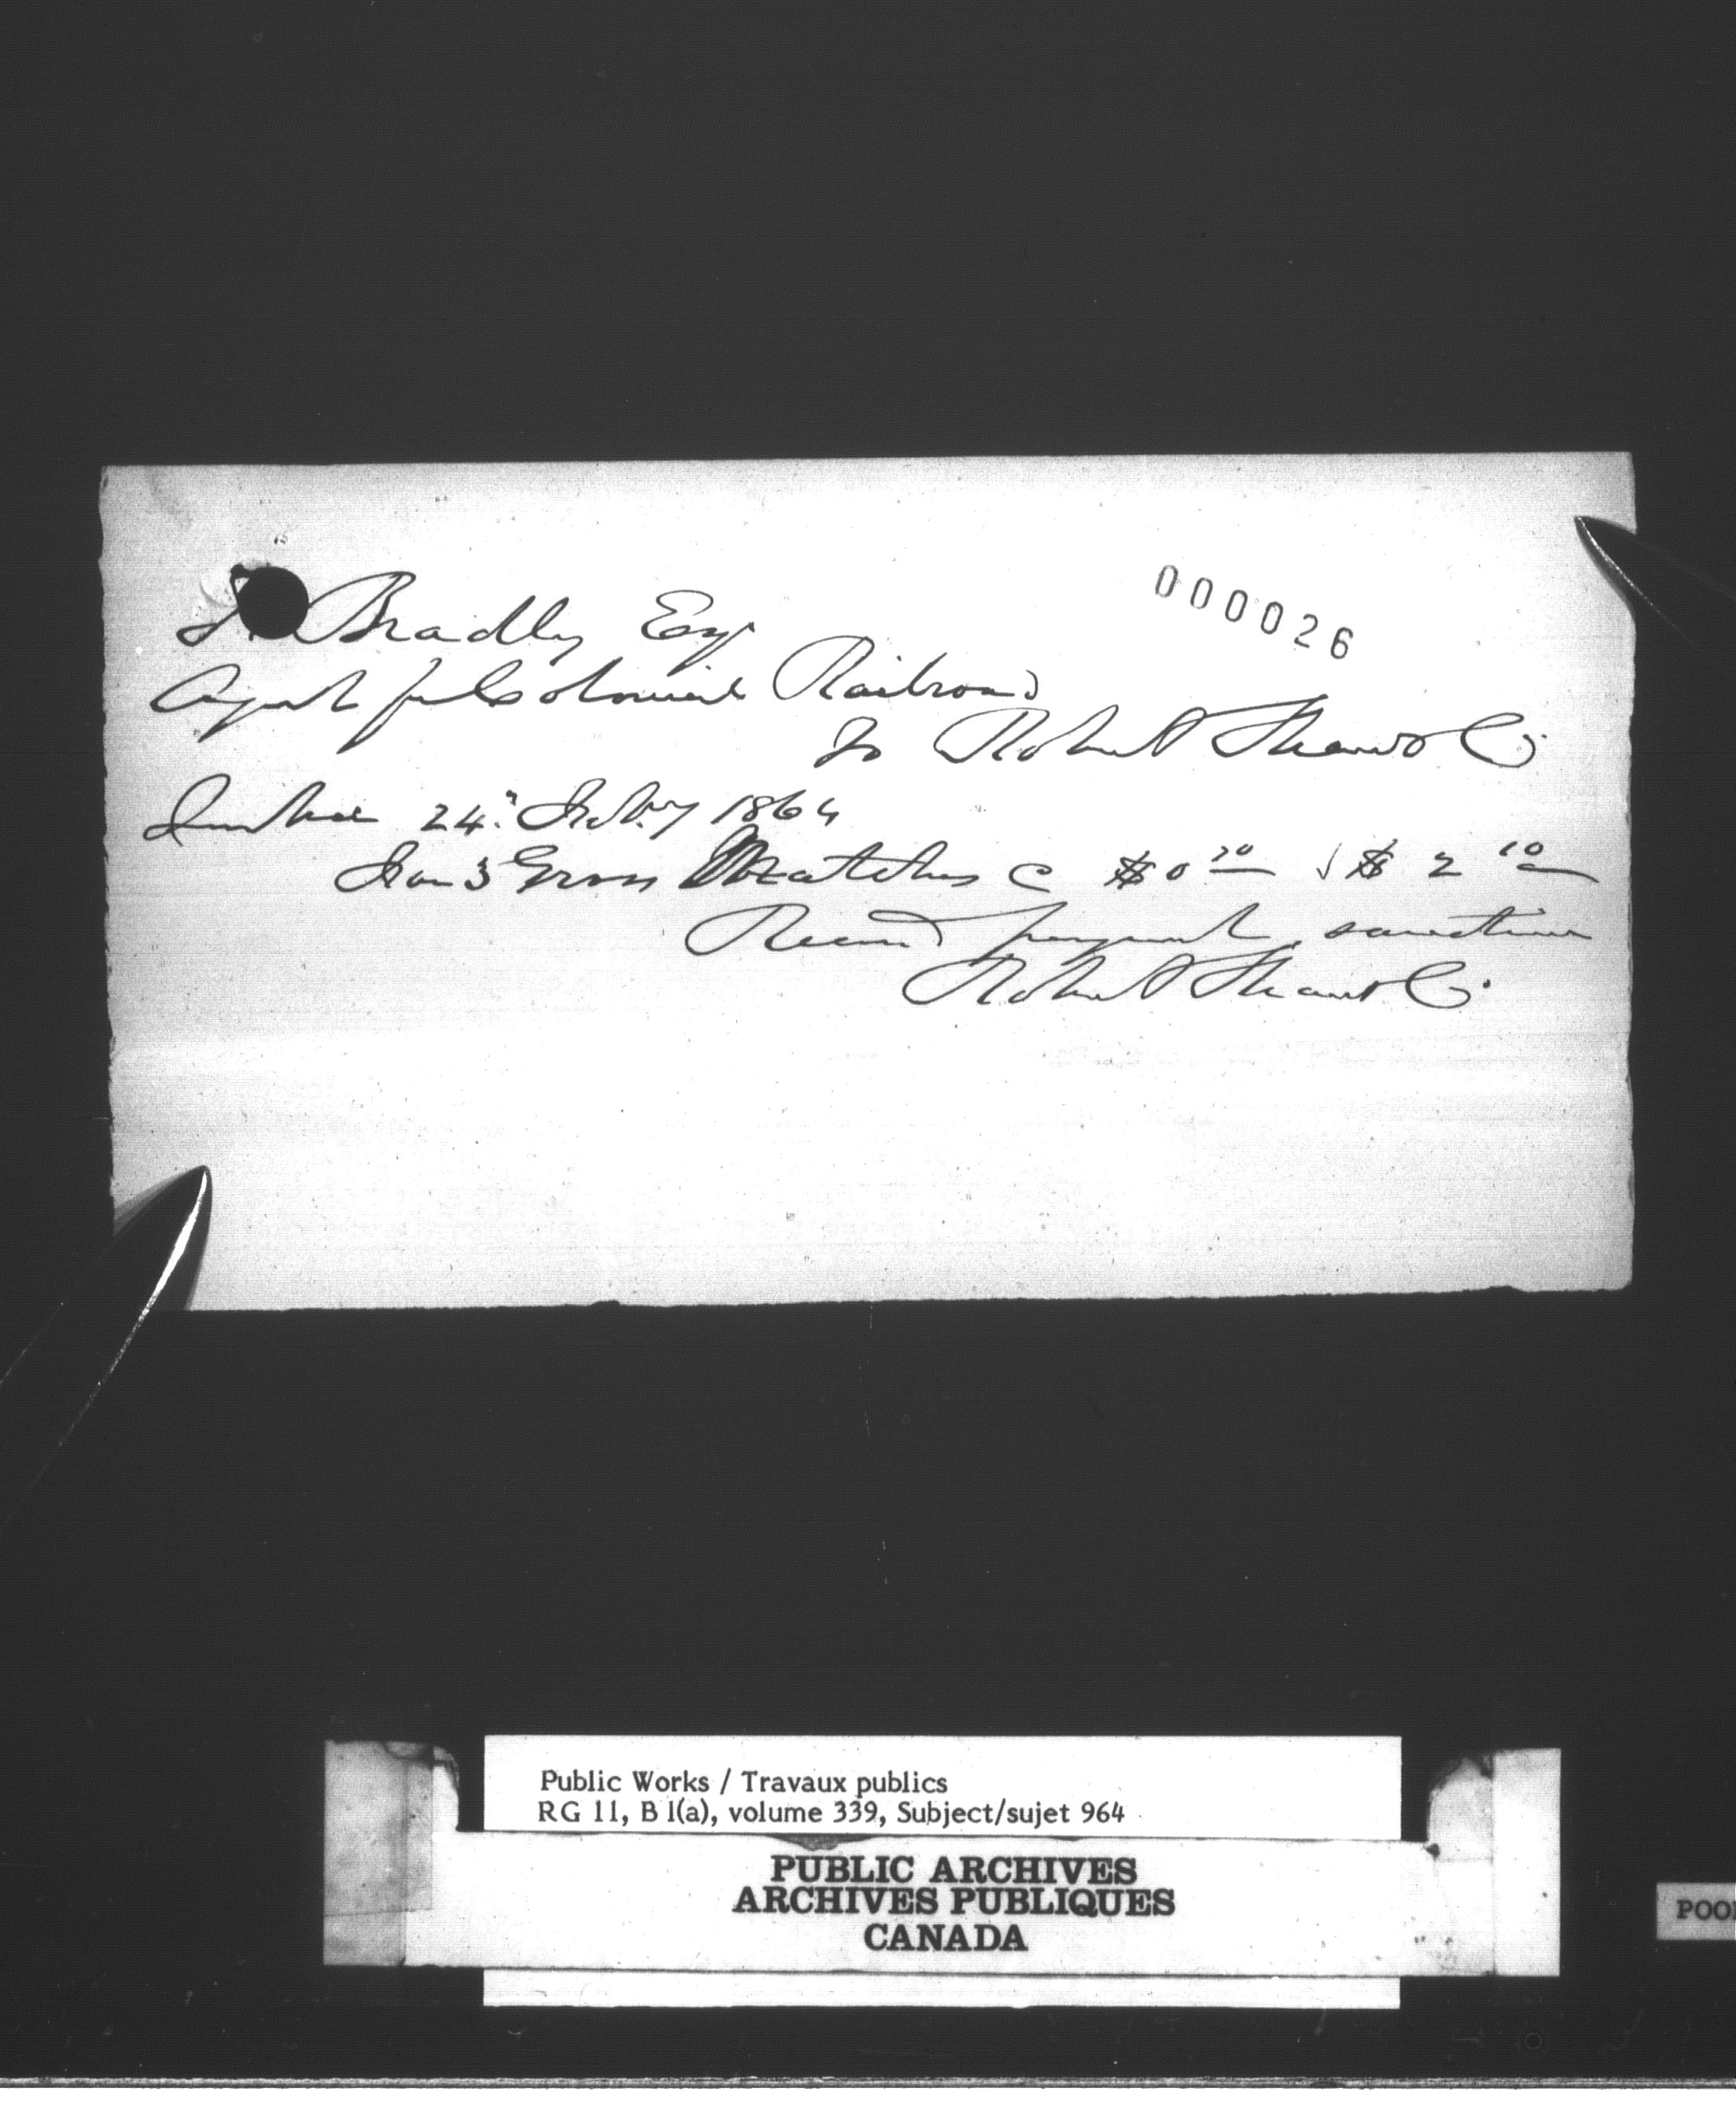 000026
Bradley Esq
Agent for Colonial Railroad
To Robert Shaw & Co.
Quebec 24" Feb.y 1864
3 Gross Matches @ $0 70 $ 2 10
Recd payment
Robert Shaw & Co.
Public Works / Travaux publics
RG 11, B 1(a), volume 339, Subject/sujet 964
PUBLIC ARCHIVES
ARCHIVES PUBLIQUES
CANADA